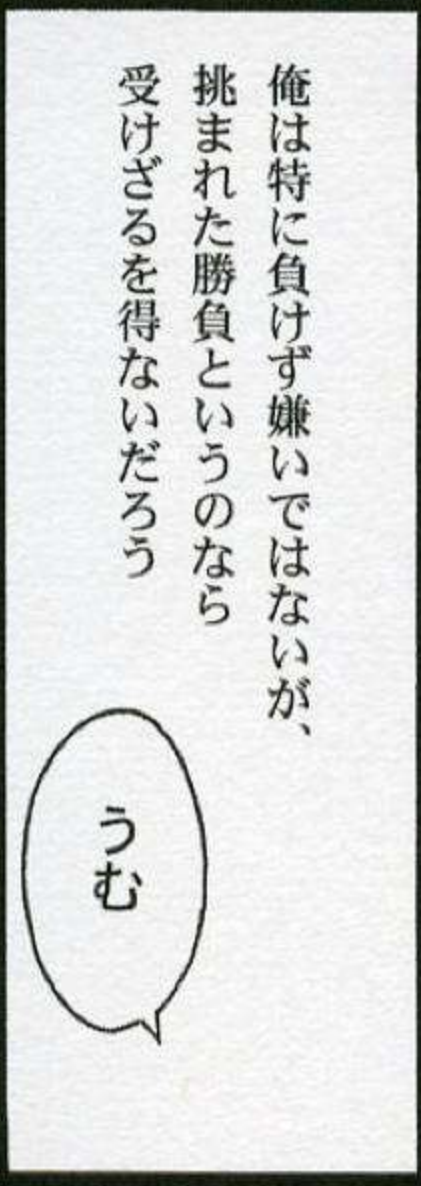 俺は特に負けず嫌いではないが、
挑まれた勝負というのなら
受けざるを得ないだろう
うむ